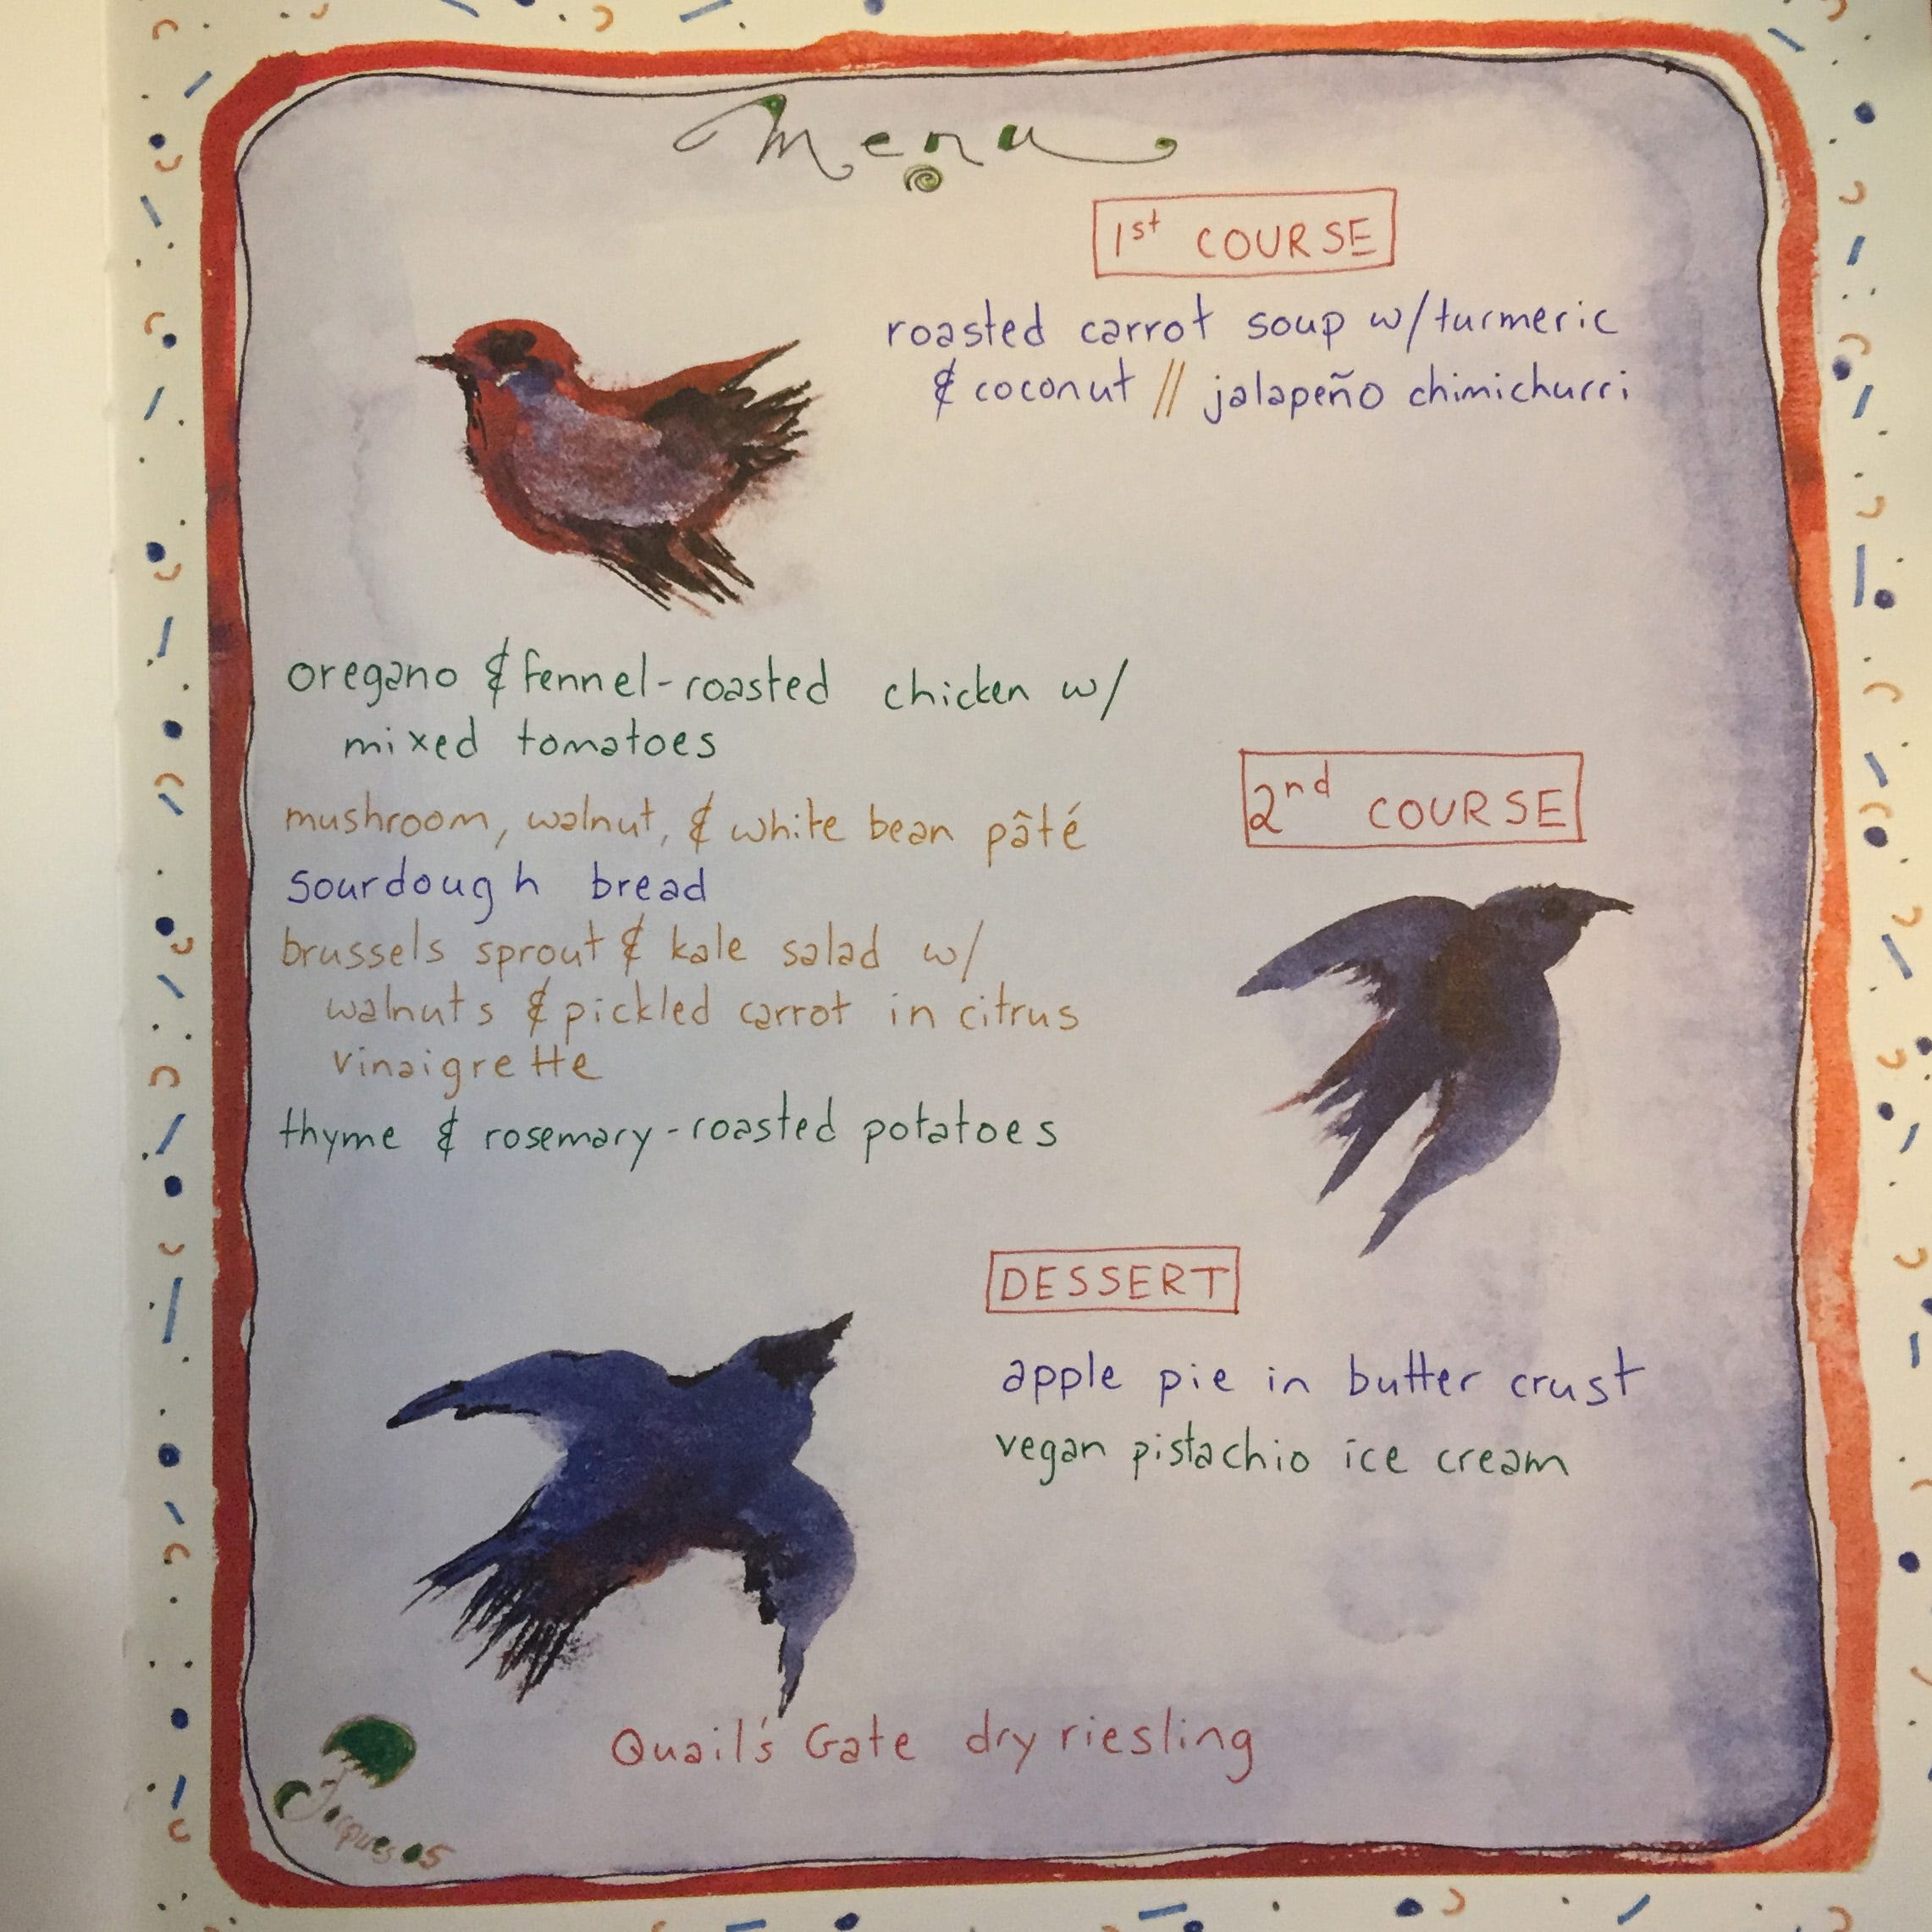 Menu
1st COURSE
roasted carrot soup w/turmeric
& coconut // jalapeño chimichurri
oregano & fennel-roasted chicken w/
mixed tomatoes
mushroom, walnut, & white bean pâté
sourdough bread
brussels sprout & kale salad w/
walnuts & pickled carrot in citrus
vinaigrette
thyme & rosemary-roasted potatoes
2nd COURSE
DESSERT
apple pie in butter crust
vegan pistachio ice cream
Quail's Gate dry riesling
Jacques 05